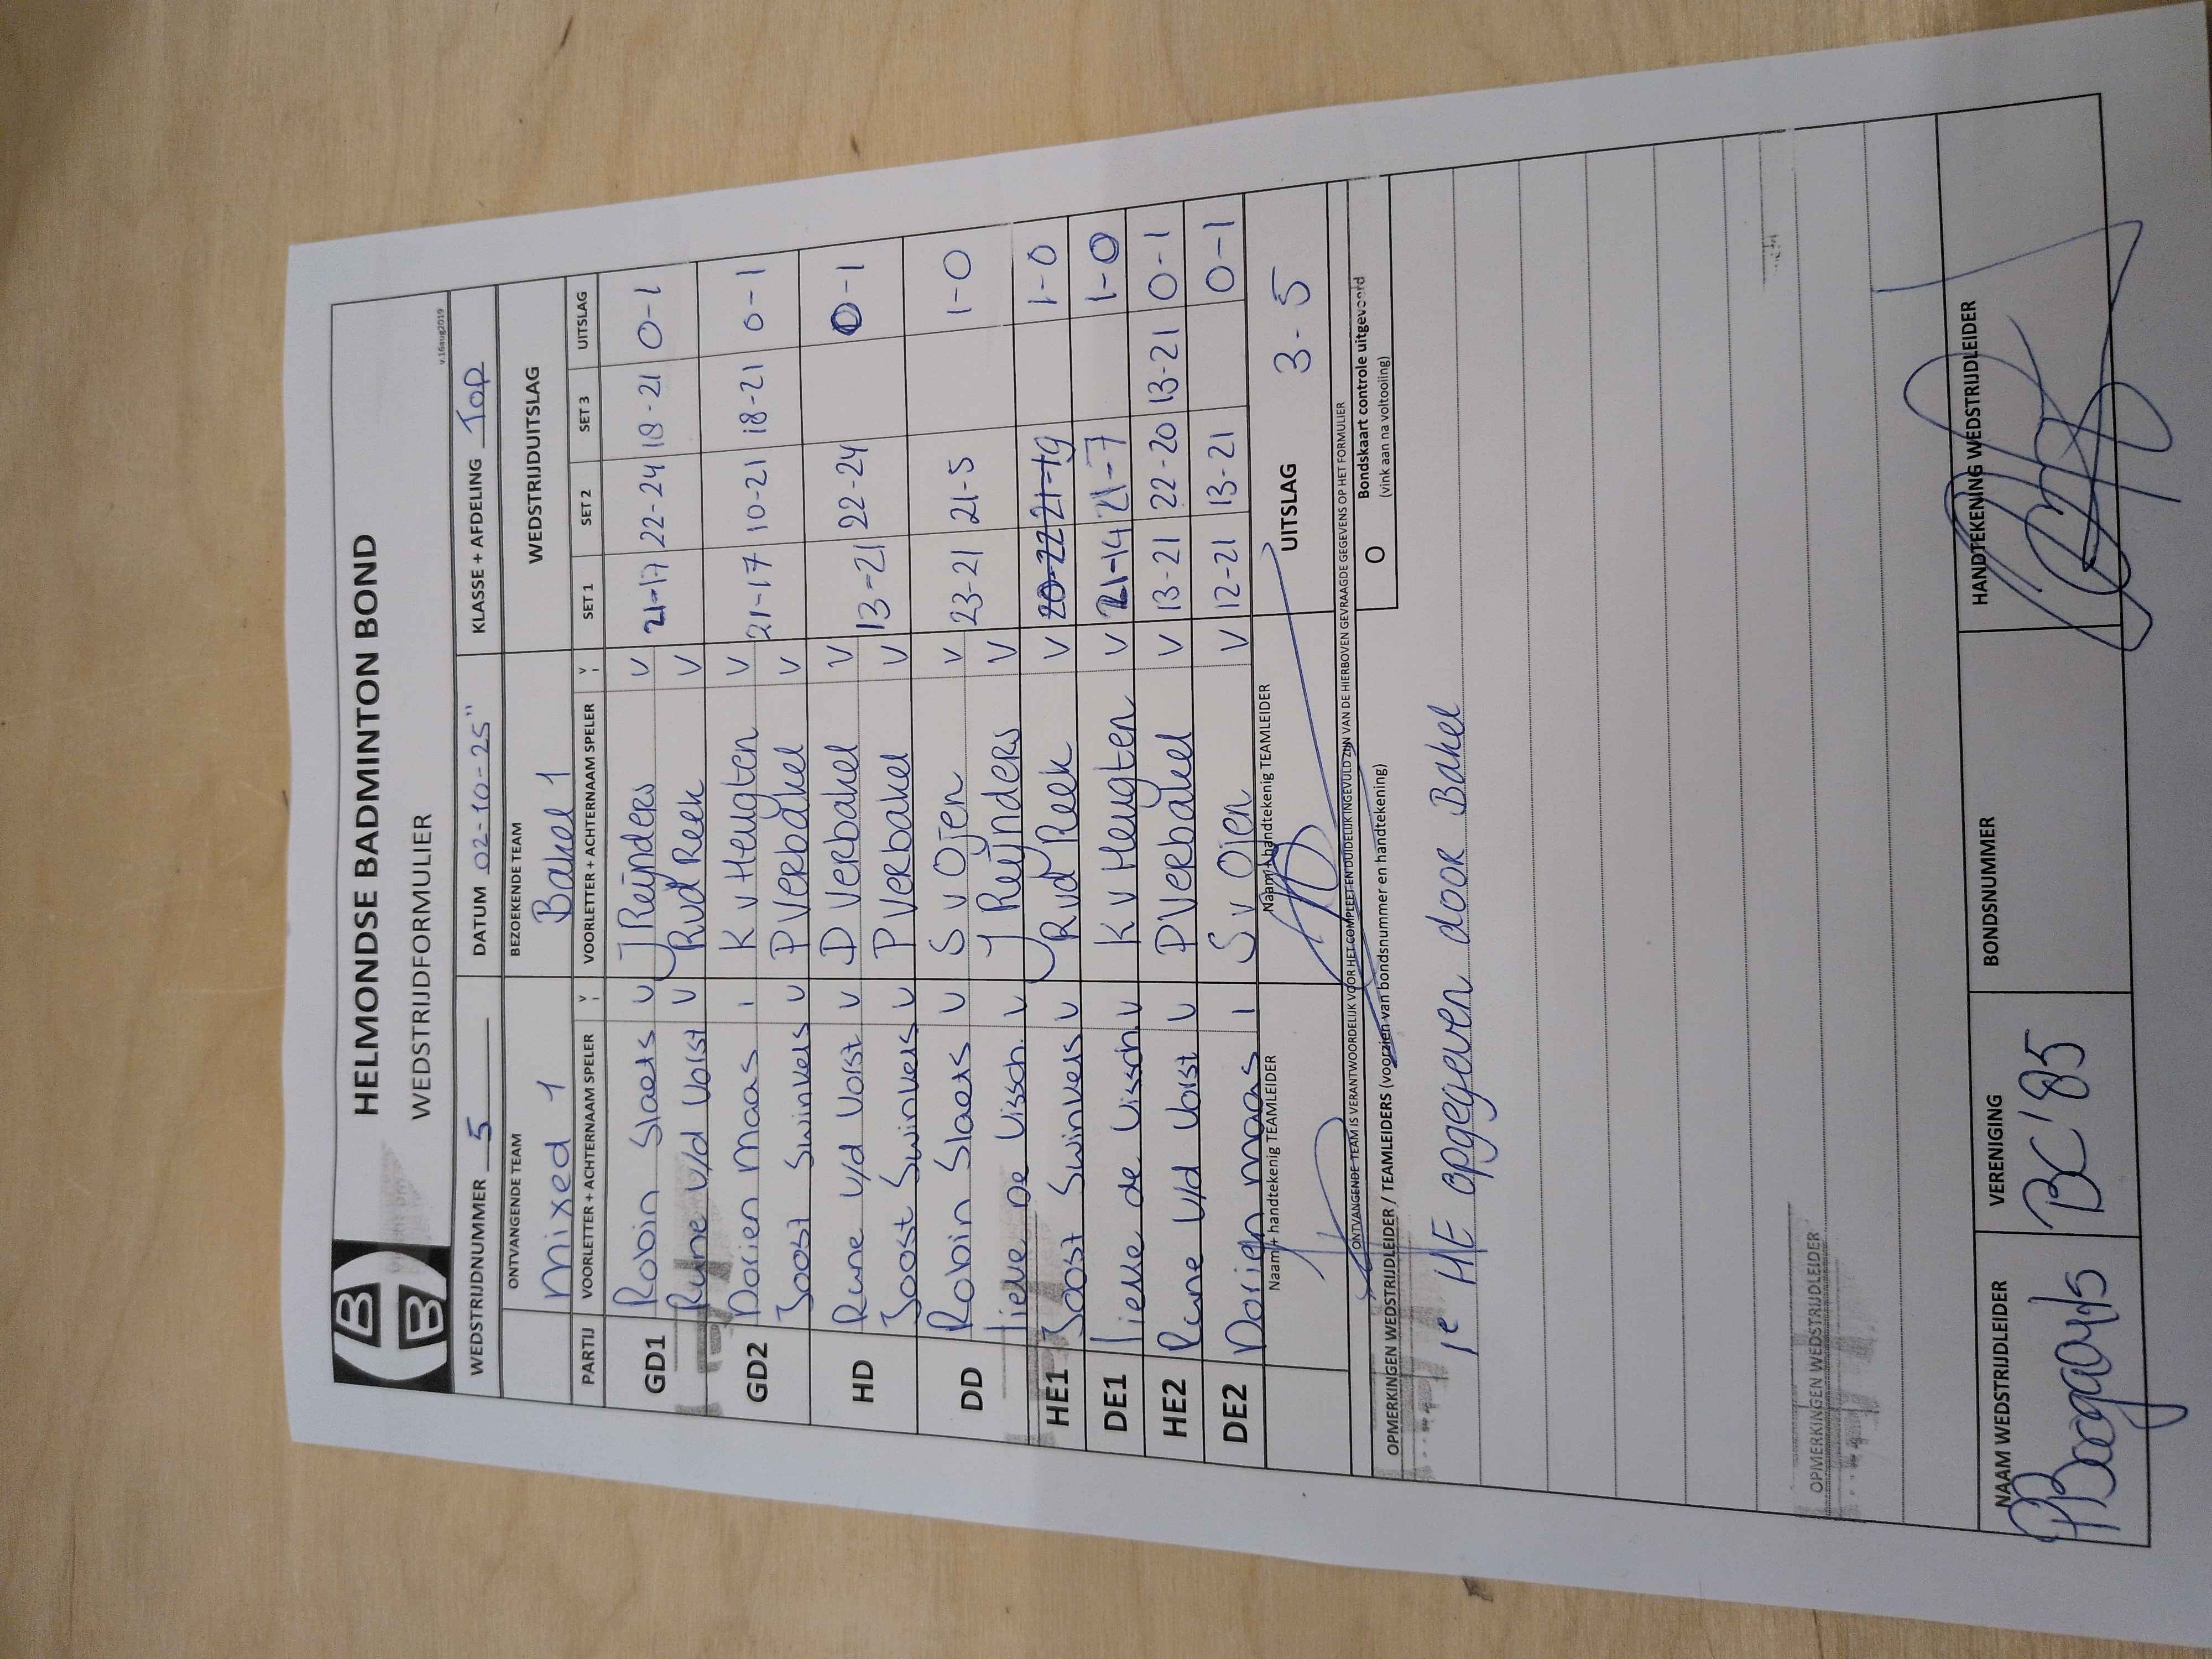 HELMONDSE BADMINTON BOND
WEDSTRIJDFORMULIER
v.16aug2019
WEDSTRIJDNUMMER 5 DATUM 02-10-25" KLASSE + AFDELING TOP
ONTVANGENDE TEAM BEZOEKENDE TEAM WEDSTRIJDUITSLAG
Mixed 1 Bakel 1
PARTIJ VOORLETTER + ACHTERNAAM SPELER VOORLETTER + ACHTERNAAM SPELER SET 1 SET 2 SET 3 UITSLAG
GD1 Robin Slaets V J Reijnders V 21-17 22-24 18-21 0-1
Rune v/d Vorst V R vd Reek V
GD2 Dorien Maas I K v Heugten V 21-17 10-21 18-21 0-1
Joost Swinkels V P Verbakel V
HD Rune v/d Vorst V D Verbakel V 13-21 22-24 0-1
Joost Swinkels V P Verbakel V
DD Robin Slaets V S v Ojen V 23-21 21-5 1-0
Tieneke De Vissch. V J Reijnders V
HE1 Joost Swinkels V R vd Reek V 20-22 21-19 1-0
DE1 de Vissch. V K v Heugten V 21-14 21-7 1-0
HE2 Rune v/d Vorst V P Verbakel V 13-21 22-20 13-21 0-1
DE2 Dorien Maas I S v Ojen V 12-21 13-21 0-1
Naam + handtekenig TEAMLEIDER Naam + handtekenig TEAMLEIDER UITSLAG 3-5
ONTVANGENDE TEAM IS VERANTWOORDELIJK VOOR HET COMPLEET EN DUIDELIJK INGEVULD ZIJN VAN DE HIERBOVEN GEVRAAGDE GEGEVENS OP HET FORMULIER
OPMERKINGEN WEDSTRIJDLEIDER / TEAMLEIDERS (voorzien van bondsnummer en handtekening)
O Bondskaart controle uitgevoerd
(vink aan na voltooiing)
1e HE opgegeven door Bakel
OPMERKINGEN WEDSTRIJDLEIDER
NAAM WEDSTRIJDLEIDER VERENIGING BONDSNUMMER HANDTEKENING WEDSTRIJDLEIDER
BC'85